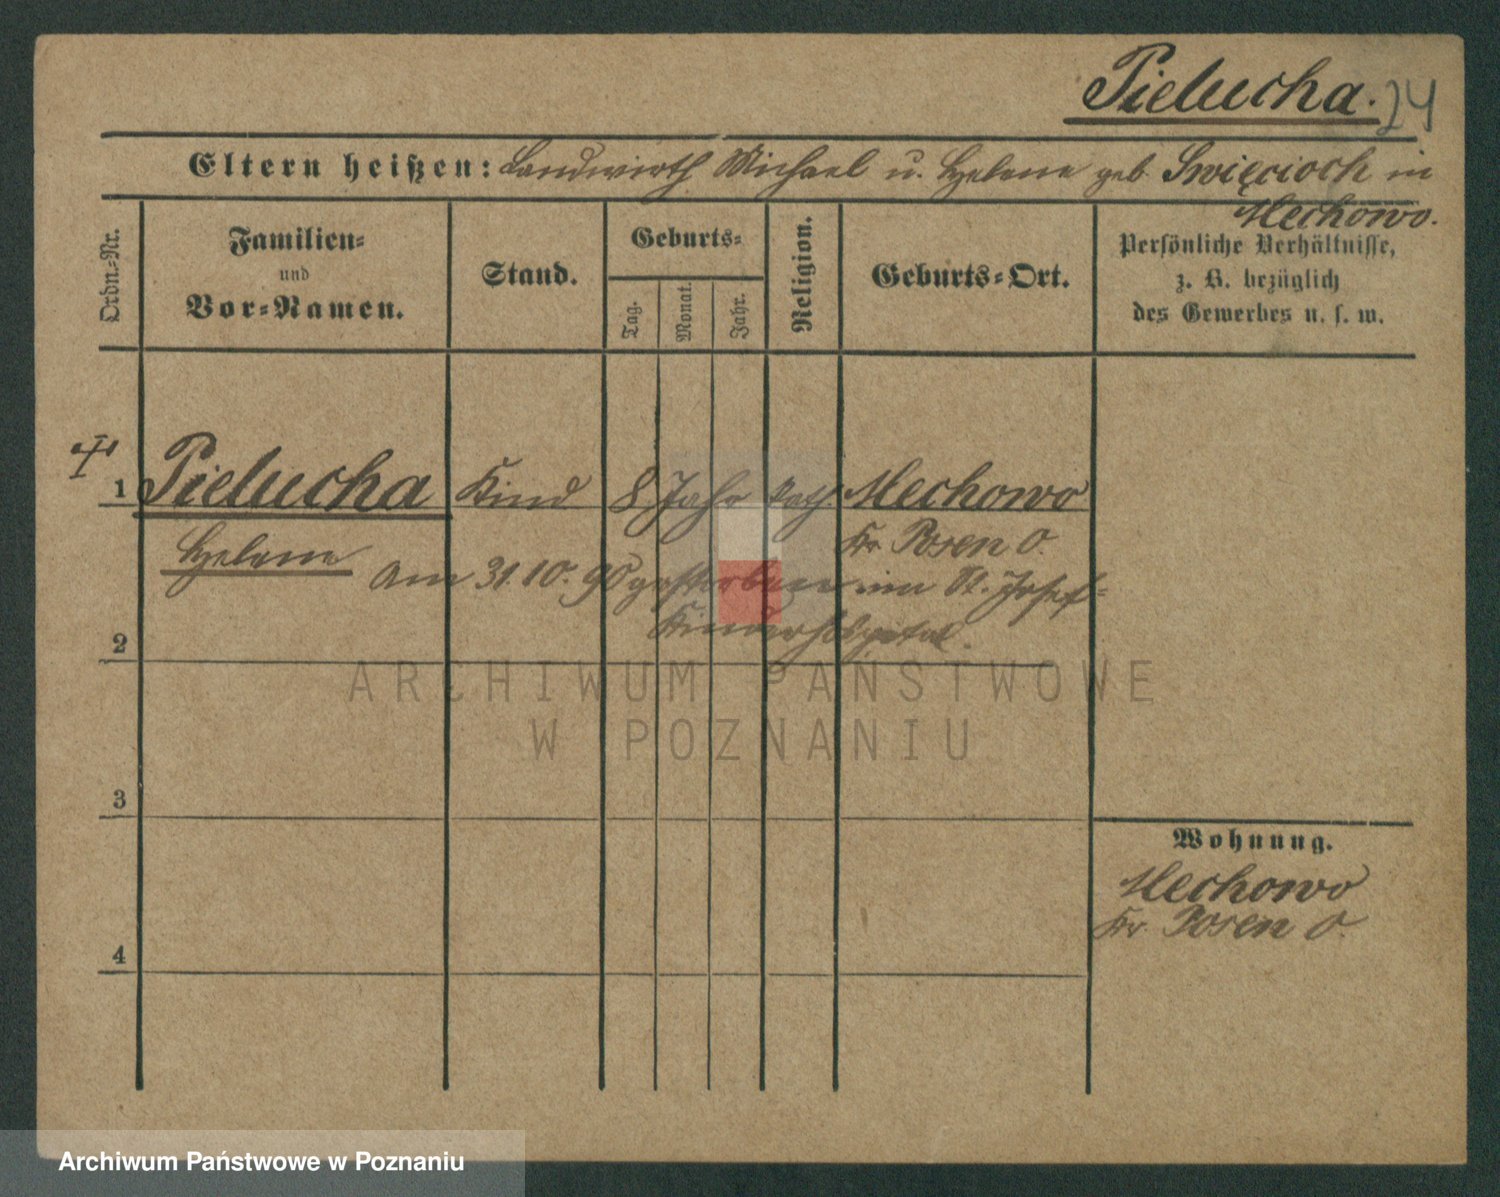 Pielucha. 24
Eltern heißen: Landwirth Michael u. Helene geb. Swięcioch in
Mechowo.
Ordn.-Nr.
Familien-
und
Vor-Namen.
Stand.
Geburts-
Tag.
Monat.
Jahr.
Religion.
Geburts-Ort.
Persönliche Verhältnisse,
z. B. bezüglich
des Gewerbes u. s. w.
1 Pielucha Kind 8 Jahr kath. Mechowo
Helene
Kr Posen O.
am 31.10.90 gestorben im St. Josef-
Kinderhospital.
2
3
4
Wohnung.
Mechowo
Kr. Posen O.
ARCHIWUM PAŃSTWOWE
W POZNANIU
Archiwum Państwowe w Poznaniu